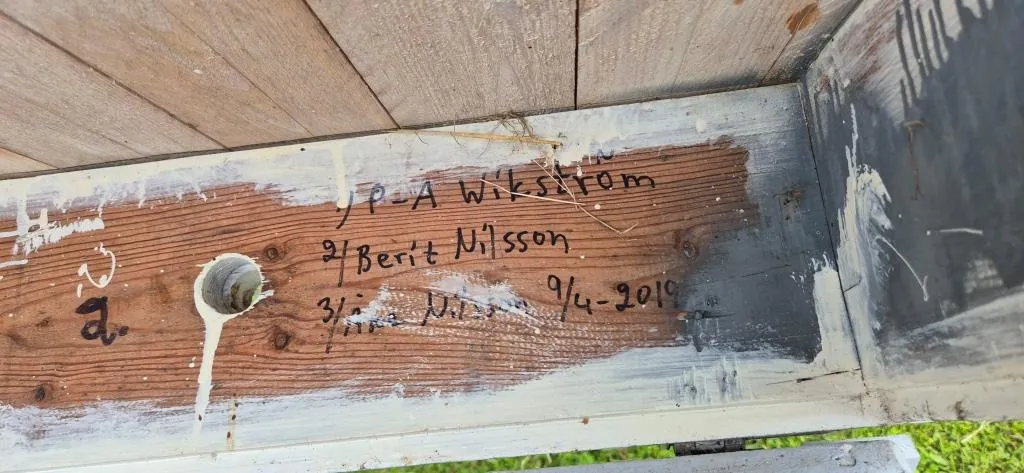 1/ P-A Wikström
2/ Berit Nilsson
3/ Åke Nilsson 9/4-2019
2.